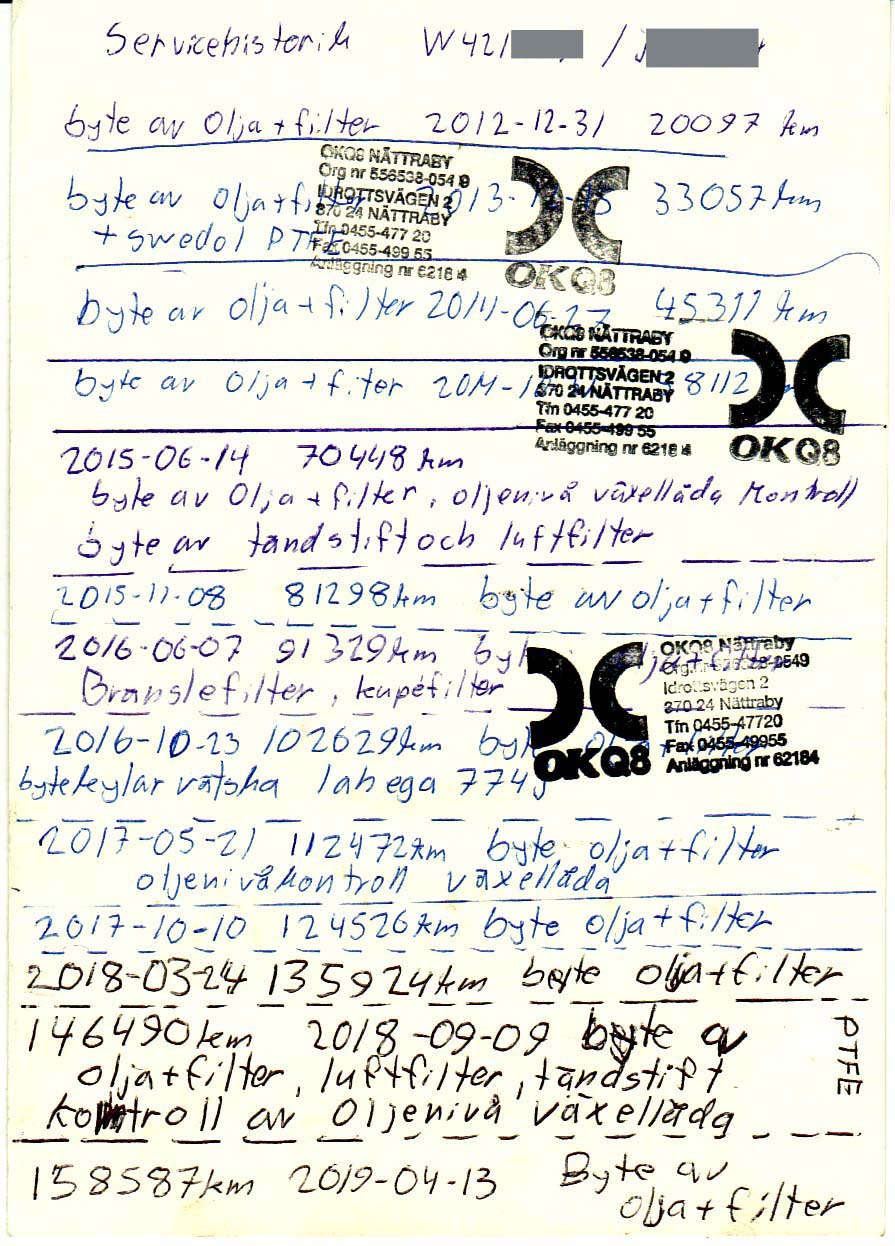 Servicehistorik W421 /
byte av olja + filter 2012-12-31 20097 km
OKQ8 NÄTTRABY
Org nr 556538-054 9
IDROTTSVÄGEN 2
370 24 NÄTTRABY
Tfn 0455-477 20
Fax 0455-499 55
Anläggning nr 6218 4
OKQ8
byte av olja + filter 33057 km
+ swedol PTFE
byte av olja + filter 2014-06-27 45311 km
OKQ8 NÄTTRABY
Org nr 556538-054 9
IDROTTSVÄGEN 2
370 24 NÄTTRABY
Tfn 0455-477 20
Fax 0455-499 55
Anläggning nr 6218 4
OKQ8
byte av olja + filter 8112
2015-06-14 70448 km
byte av olja + filter, oljenivå växellåda kontroll
byte av tändstift och luftfilter
2015-11-08 81298 km byte av olja + filter
2016-06-07 91329 km olja + filter
Bränslefilter, kupéfilter
OKQ8
OKQ8 Nättraby
Idrottsvägen 2
370 24 Nättraby
Tfn 0455-47720
Fax 0455-49955
Anläggning nr 62184
2016-10-23 102629 km
byte kylar vätska lahega 774
2017-05-21 112472 km byte olja + filter
oljenivåkontroll växellåda
2017-10-10 124526 km byte olja + filter
2018-03-24 135924 km byte olja + filter
146490 km 2018-09-09 byte a
olja + filter, luftfilter, tändstift
kontroll av oljenivå växellåda
PTFE
158587 km 2019-04-13 Byte av
olja + filter